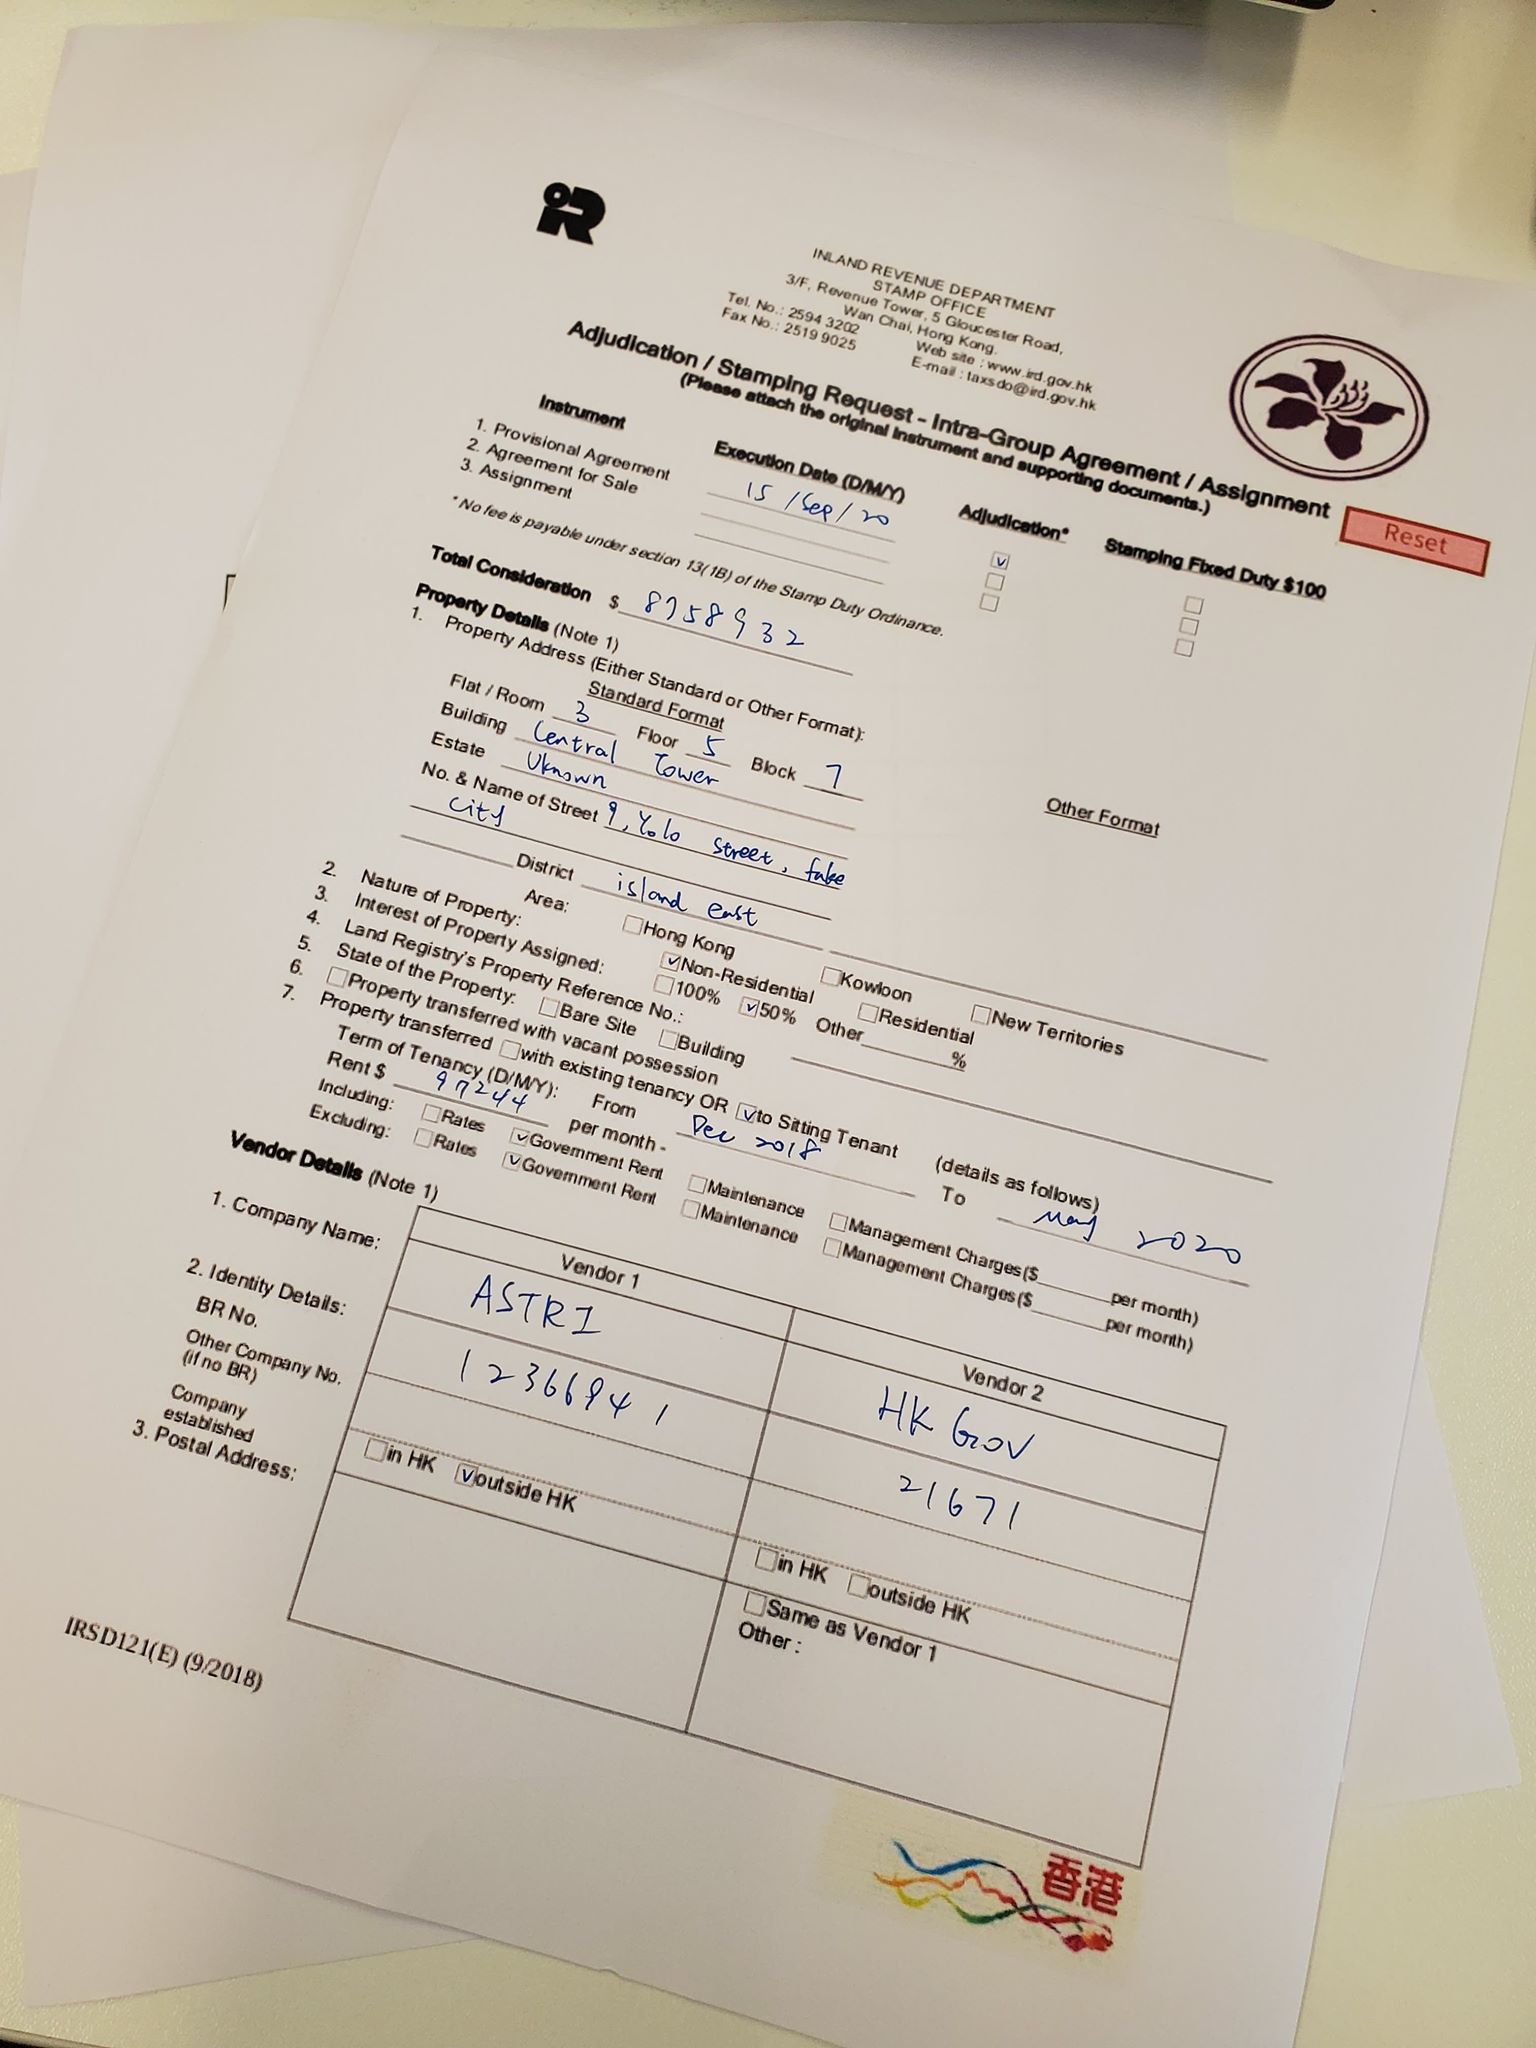 INLAND REVENUE DEPARTMENT
STAMP OFFICE
3/F, Revenue Tower, 5 Gloucester Road,
Wan Chai, Hong Kong.
Tel. No.: 2594 3202 Web site : www.ird.gov.hk
Fax No.: 2519 9025 E-mail : taxsdo@ird.gov.hk
Adjudication / Stamping Request - Intra-Group Agreement / Assignment
(Please attach the original instrument and supporting documents.)
Reset
Instrument Execution Date (D/M/Y) Adjudication* Stamping Fixed Duty $100
1. Provisional Agreement 15 / Sep / 20
2. Agreement for Sale
3. Assignment
* No fee is payable under section 13(1B) of the Stamp Duty Ordinance.
Total Consideration $ 8758932
Property Details (Note 1)
1. Property Address (Either Standard or Other Format):
Standard Format Other Format
Flat / Room 3 Floor 5 Block 7
Building Central Tower
Estate Uknown
No. & Name of Street 9, Yolo street, fake
city
District island east
Area: Hong Kong Kowloon New Territories
2. Nature of Property: Non-Residential Residential
3. Interest of Property Assigned: 100% 50% Other %
4. Land Registry's Property Reference No.:
5. State of the Property: Bare Site Building
6. Property transferred with vacant possession
7. Property transferred with existing tenancy OR to Sitting Tenant (details as follows)
Term of Tenancy (D/M/Y): From Dec 2018 To May 2020
Rent $ 97244 per month -
Including: Rates Government Rent Maintenance Management Charges ($ per month)
Excluding: Rates Government Rent Maintenance Management Charges ($ per month)
Vendor Details (Note 1)
Vendor 1 Vendor 2
1. Company Name: ASTRI HK Gov
2. Identity Details:
BR No. 21671
Other Company No.
(if no BR)
Company
established in HK outside HK in HK outside HK
3. Postal Address: Same as Vendor 1
Other :
IRSD121(E) (9/2018)
香港